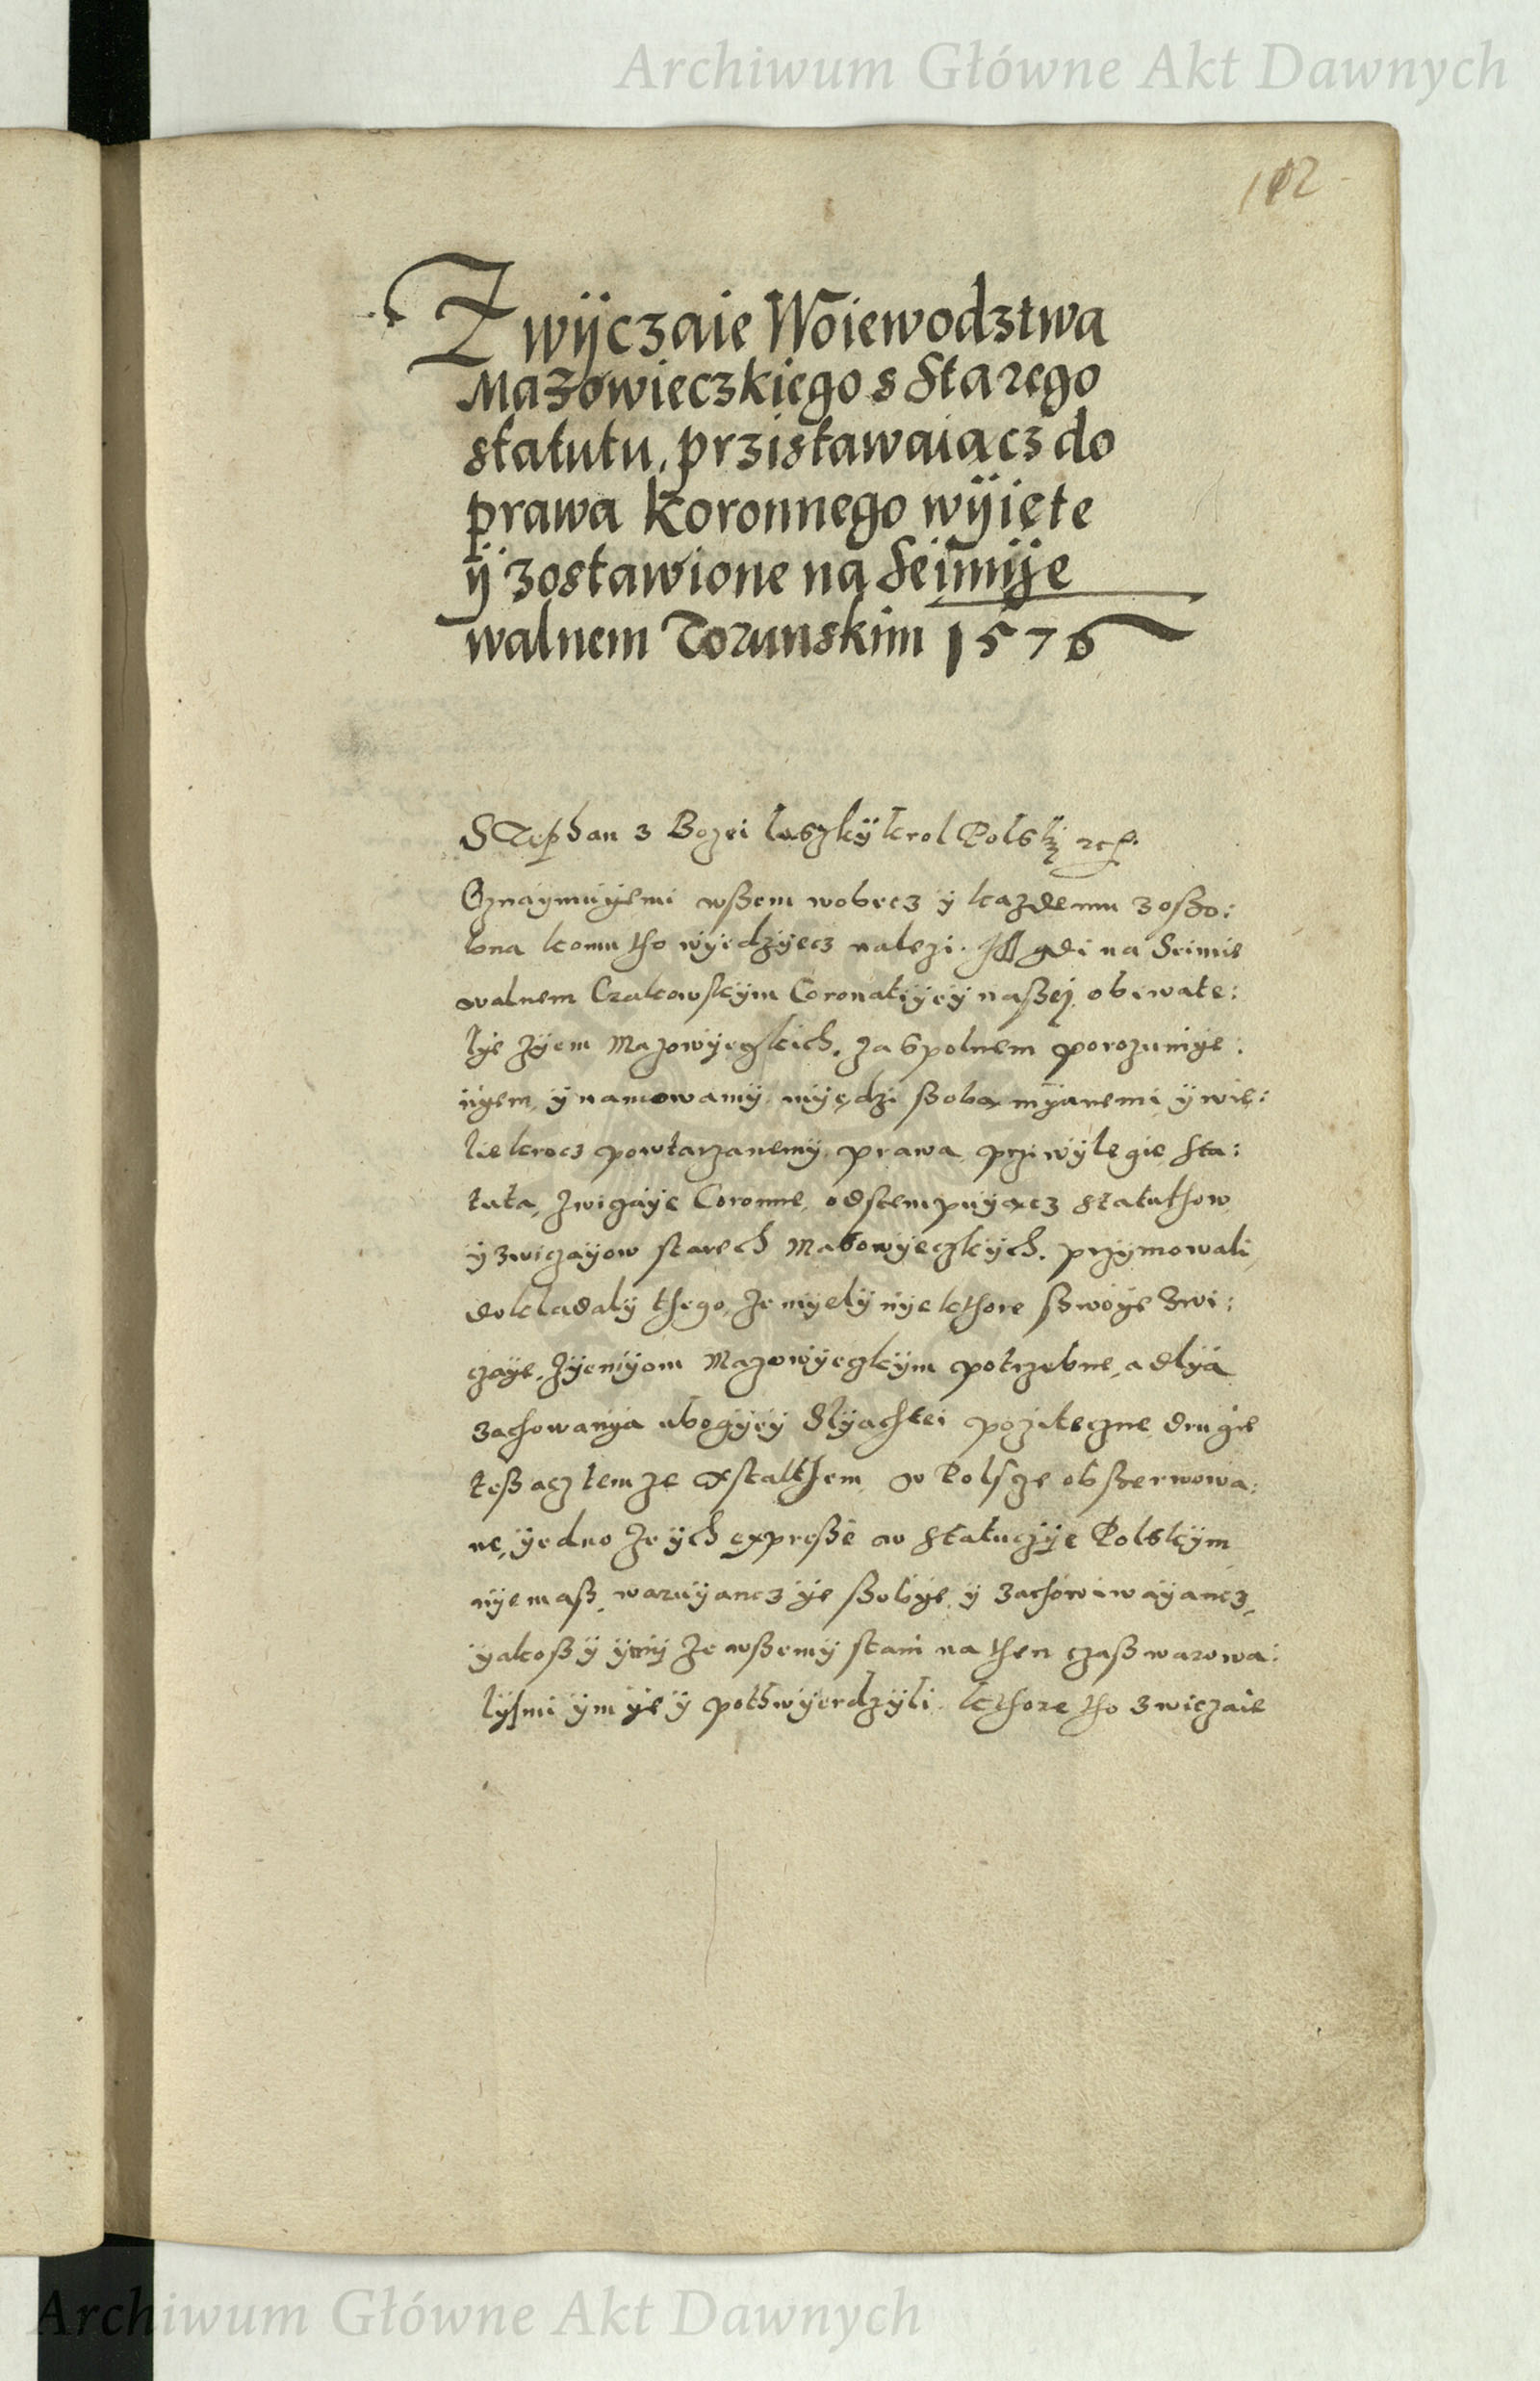 Archiwum Główne Akt Dawnych
112
Zwÿczaie Woiewodztwa
Mazowieczkiego s Starego
statutu, przistawaiącz do
prawa koronnego wÿięte
ÿ zostawione na Seimÿe
walnem Torunskim 1576
STephan z Bozei laszkÿ krol Polskÿ etc.
Oznaymuÿemi wßem wobecz ÿ kazdemu zoßo:
bna komu tho wÿedzÿecz nalezi. Iß gdi na Seimie
walnem Crakowskÿm Coronatiÿeÿ naßej, obiwate:
lÿe zÿem Mazowÿeczkich, za spolnem porozumÿe:
nÿem, ÿ namowamÿ, mÿędzi ßoba mÿanemi, ÿ wie:
liekrocz powtarzanemÿ, prawa, prziwÿlegie, sta:
tuta, zwiczaÿe Coronne, odstempuÿącz statuthow
ÿ zwiczaÿow starech Masowÿeczkÿch, przÿmowali,
dokladalÿ thego, ze mÿelÿ nÿekthore ßwoÿe zwi:
czaÿe, zÿemÿom Mazowÿeczkÿm potrzebne, a dlÿa
zachowanÿa ubogÿeÿ Slÿachtei poziteczne, drugie
teß acz temze xstalthem w Polscze obßerwowa:
ne, ÿedno ze ÿch expreßè w statuczÿe Polskÿm
nÿemaß, waruÿancz ÿe ßobÿe, ÿ zachowiwaÿancz,
ÿakoßÿ ÿmÿ ze wßemÿ stani na then czaß warowa:
lÿsmi ÿm ÿe ÿ pothwÿerdzÿli. kthore tho zwiczaie
Archiwum Główne Akt Dawnych